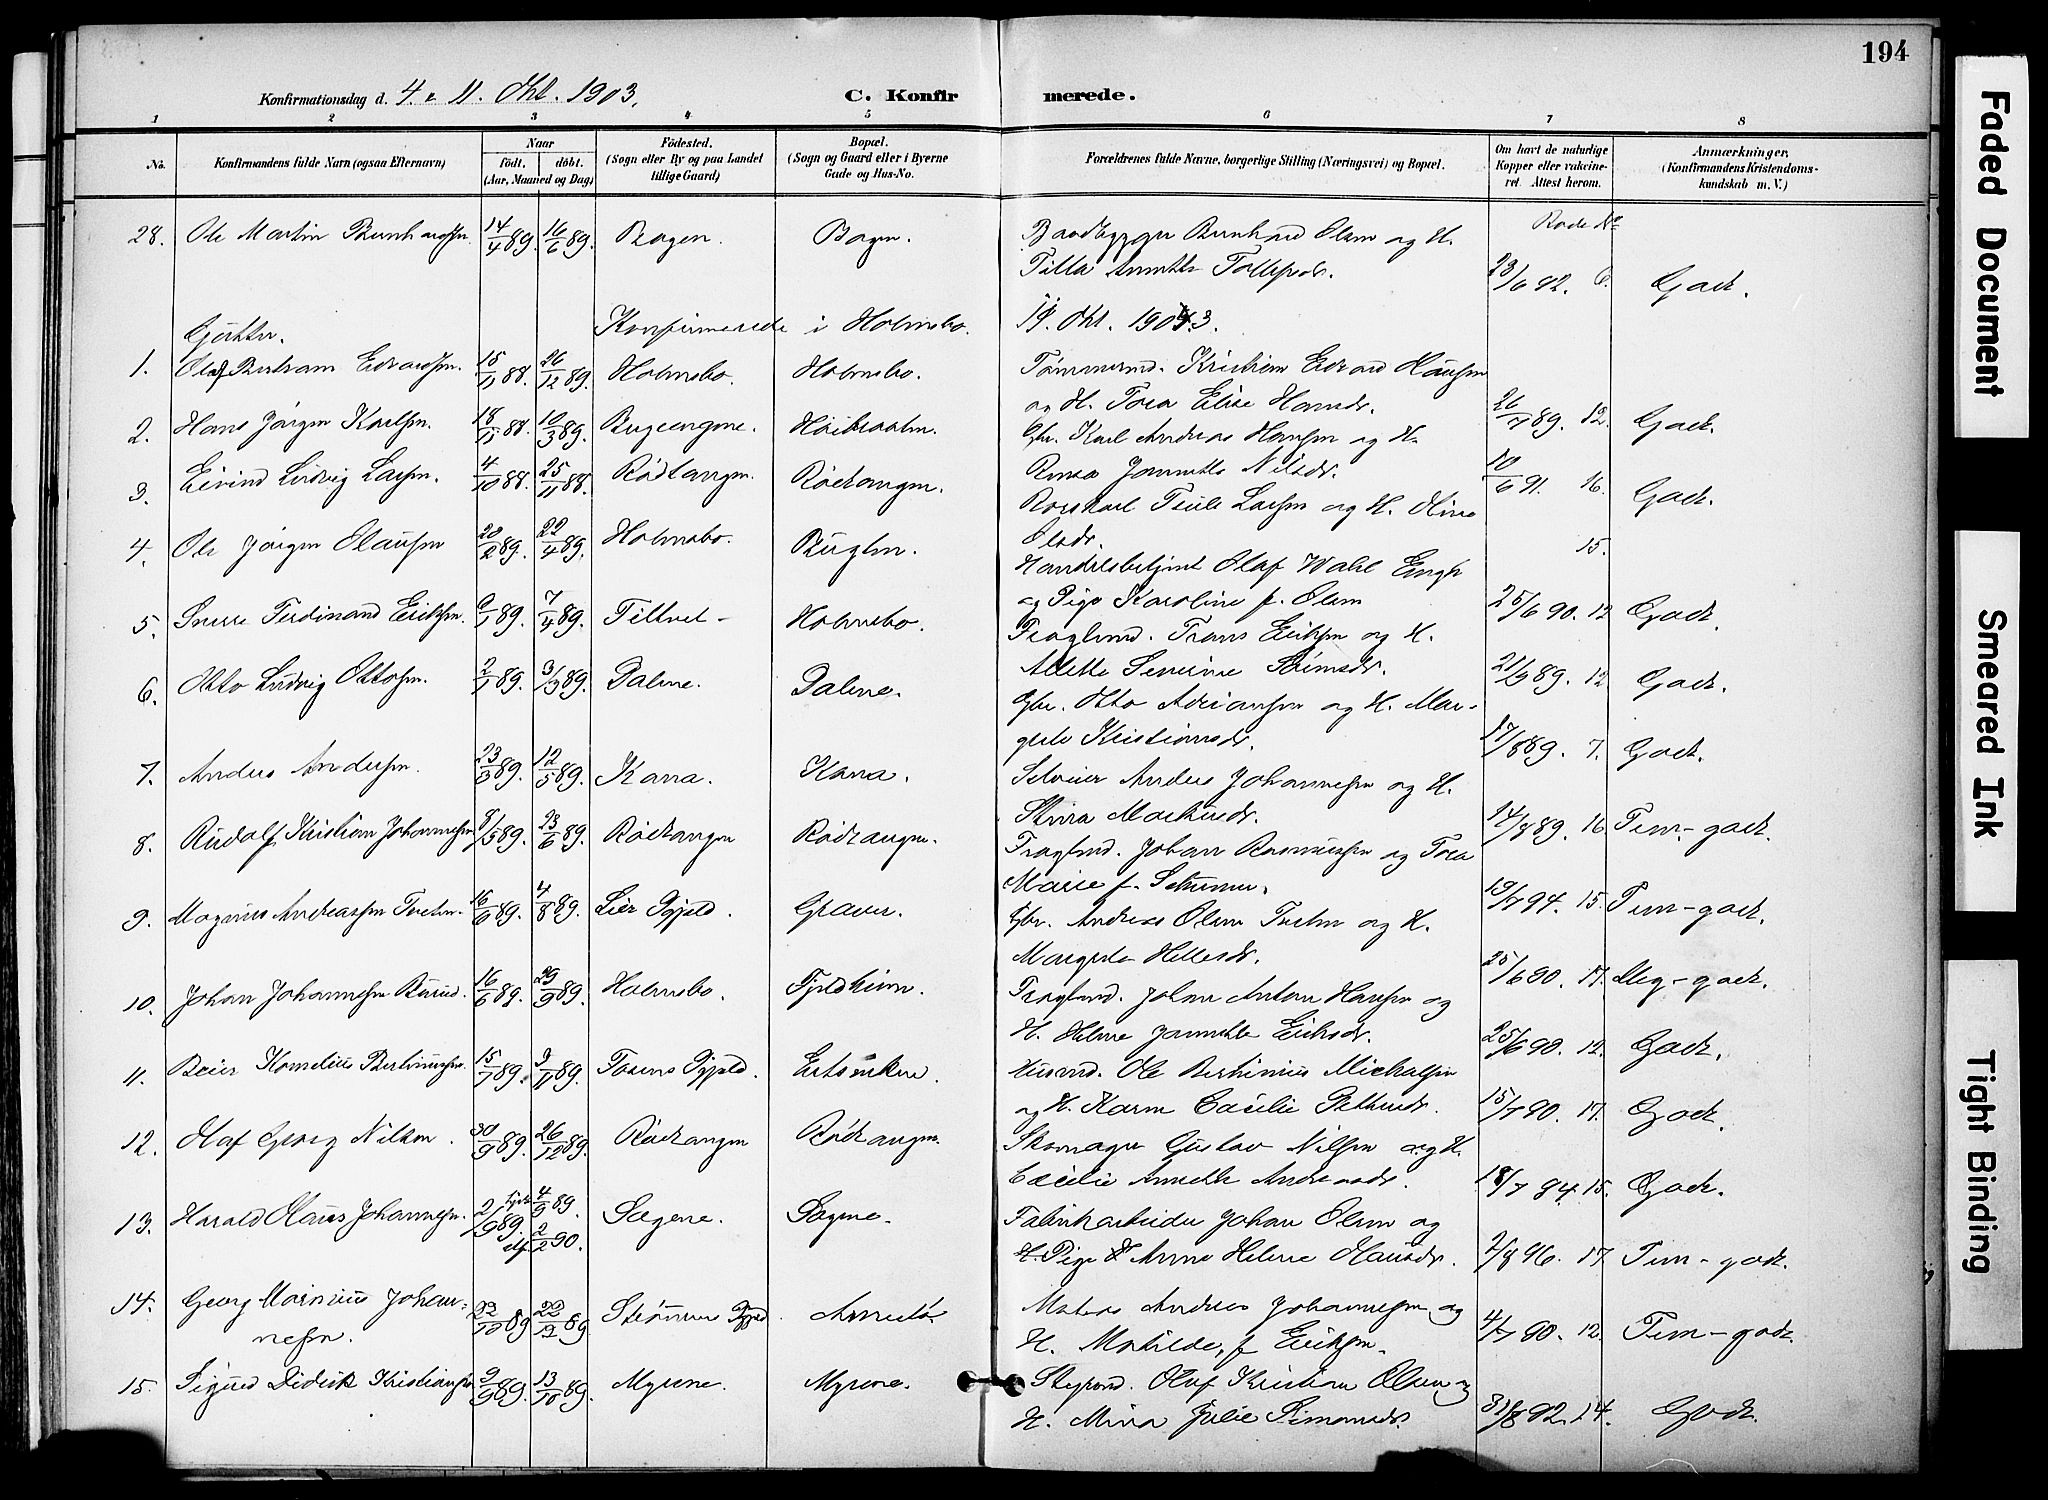 194
Konfirmationsdag d. 4 & 11. Okt. 1903.
C. Konfirmerede.
1 2 3 4 5 6 7 8
No.
Konfirmandens fulde Navn (ogsaa Efternavn)
Naar
født, døbt.
(Aar, Maaned og Dag)
Födested.
(Sogn eller By og paa Landet
tillige Gaard)
Bopæl.
(Sogn og Gaard eller i Byerne
Gade og Hus-No.
Forældrenes fulde Navne, borgerlige Stilling (Næringsvei) og Bopæl.
Om havt de naturlige
Kopper eller vakcine-
ret. Attest herom.
Anmærkninger,
(Konfirmandens Kristendoms-
kundskab m. V.)
28. Ole Martin Bernhardsen 14/4 89. 16/6 89. Bogen. Bogen. Baadbygger Bernhard Olsen og H.
23/6 92. 6. Godt.
Gutter. Konfirmerede i Holmsbo. 11. Okt. 1903.
1. Olaf Bertram Edvardsen. 15/11 88. 26/12 89. Holmsbo. Holmsbo. Tömmermd. Kristian Edvard Hansen
og H. Tora Elise Hansdr. 26/7 89. 12. Godt.
2. Hans Jörgen Karlsen. 18/11 88. 10/3 89. Gbr. Karl Andreas Hansen og H.
Jannette Nilsdr. 10/6 91. 16. Godt.
3. Eivind Ludvig Larsen. 4/10 88. 25/11 88. Rödtangen. Rödtangen. Larsen og H.
Olsdr. 15.
4. Ole Jörgen Olausen 20/2 89. 22/4 89. Holmsbo. Handelsbetjent Olaf
og Pige Karoline f. Olsen 25/6 90. 12 Godt.
5. Sverre Ferdinand Eriksen. 7/4 89. Tiltvet Holmsbo. Fraglmd. Frans Eriksen og H.
21/9 89. 12 Godt.
6. Otto Ludvig Ottosen. 2/1 89. 3/3 89. Dalene. Dalene. Gbr. Otto Adriansen og H. Mar-
grete Kristiansdr. 17/8 89. 7. Godt.
7. Anders Andersen. 23/3 89. 12/5 89. Kana. Kana. Selveier Anders Johannesen og H.
Stina Markusdr. 14/8 89. 16 Tem. godt.
8. Rudolf Kristian Johannesen 8/5 89. 23/6 89. Rödtangen Rödtangen. Fraglmd. Johan Rasmussen og Tora
Marie f. 19/7 94. 15. Tem - godt.
9. Magnus Andreassen Tveten. 16/6 89. 4/8 89. Lier Pgjeld. Graver. Gbr. Andreas Olsen Tveten og H.
Margrete Hellesdr. 25/6 90. 17. Meg - godt.
10. Johan Johannesen 16/6 89. 29/9 89. Holmsbo. Fjeldheim. Fraglmd. Johan Anton Hansen og
H. Helene Jannette Eriksdr. 25/6 90. 12. Godt.
11. Kornelius Bertiniussen. 15/7 89. 3/11 89. Pgjeld. Husmd. Ole Bertinius Michalsen
og H. Karen Cæcilie 15/7 90. 17. Godt.
12. Olaf Georg Nilsen. 30/9 89. 26/12 89. Rödtangen Rödtangen. Skomager Gustav Nilsen og H.
Cæcilie Annette Andreasdr. 18/7 94. 15. Godt.
13. Harald Johannesen. 2/9 89. 4/9 89. 2/2 90. Sagene. Sagene. Fabrikarbeider Johan Olsen og
Pige Anne Helene 2/8 96. 17. Tem - godt.
14. Georg Marinius Johan-
nesen. 22/10 89 22/12 89 Strömmen Pgjeld. Matros Andreas Johannesen og
H. Matilde, f. Eriksen. 4/7 90. 12. Tem - godt.
15. Sigurd Didrik Kristiansen 9/9 89. 13/10 89. Myrene. Myrene. Styrmd. Olaf Kristian Olsen og
H. Mina Julie Simonsdr. 31/8 92. 14. Godt.
Faded Document
Smeared Ink
Tight Binding